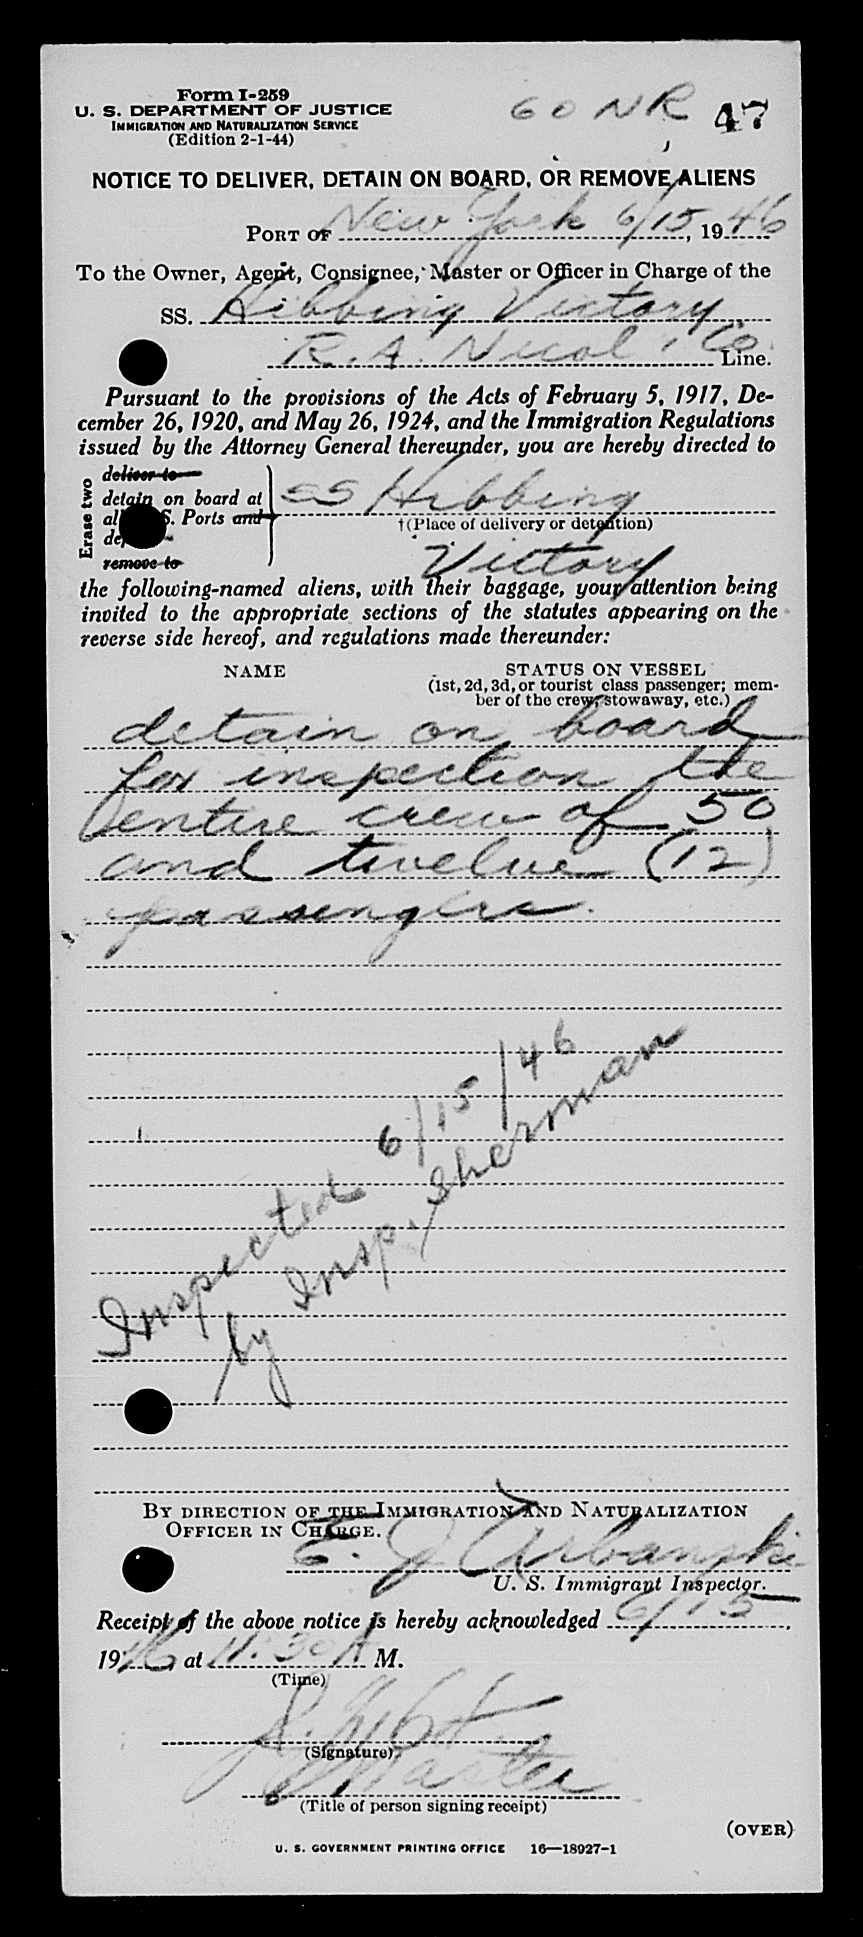 Form I-259
U. S. DEPARTMENT OF JUSTICE
IMMIGRATION AND NATURALIZATION SERVICE
(Edition 2-1-44)
60 NR 47
NOTICE TO DELIVER, DETAIN ON BOARD, OR REMOVE ALIENS
PORT OF New York 6/15, 1946
To the Owner, Agent, Consignee, Master or Officer in Charge of the
SS. Hibbing Victory
R. A. Nicol & Co. Line.
Pursuant to the provisions of the Acts of February 5, 1917, De-
cember 26, 1920, and May 26, 1924, and the Immigration Regulations
issued by the Attorney General thereunder, you are hereby directed to
Erase two
deliver to
detain on board at
S. Ports and
remove to
SS Hibbing
†(Place of delivery or detention)
Victory
the following-named aliens, with their baggage, your attention being
invited to the appropriate sections of the statutes appearing on the
reverse side hereof, and regulations made thereunder:
NAME STATUS ON VESSEL
(1st, 2d, 3d, or tourist class passenger; mem-
ber of the crew, stowaway, etc.)
detain on board
for inspection the
entire crew of 50
and twelve (12)
passengers.
Inspected 6/15/46
by Insp. Sherman
BY DIRECTION OF THE IMMIGRATION AND NATURALIZATION
OFFICER IN CHARGE.
E. J. Urbanski
U. S. Immigrant Inspector.
Receipt of the above notice is hereby acknowledged 6/15,
1946, at 11:30 A M.
(Time)
(Signature)
Master
(Title of person signing receipt)
(OVER)
U. S. GOVERNMENT PRINTING OFFICE 16—18927-1